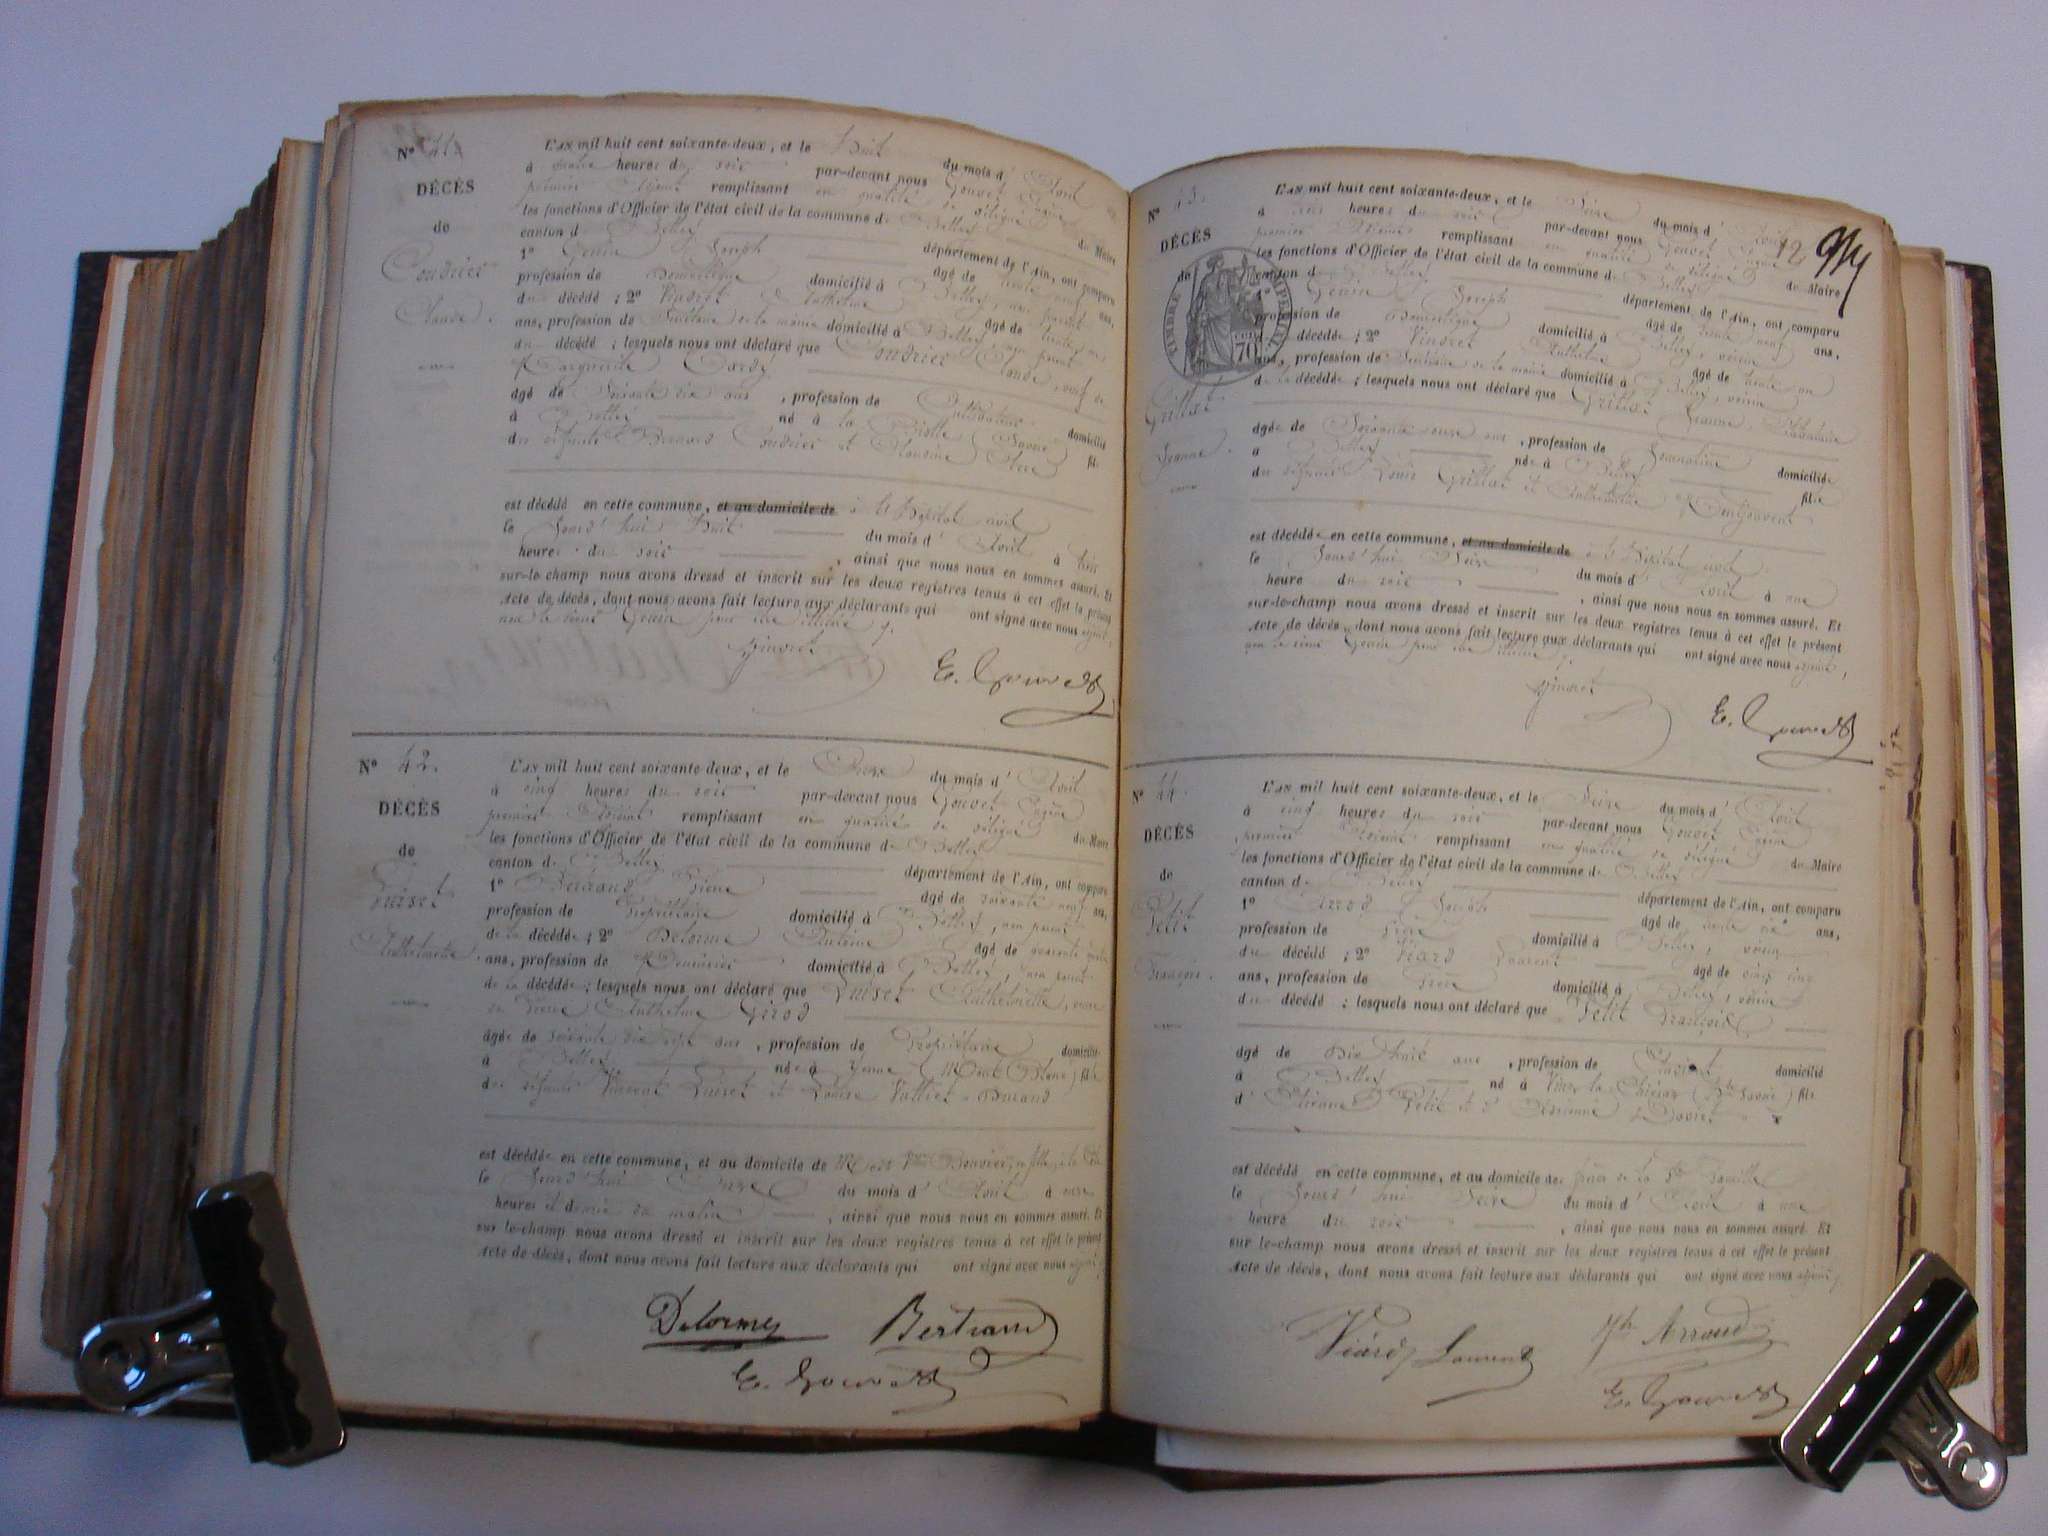 N° 41
DÉCÈS
de
Coudrier
Claude.
L'AN mil huit cent soixante-deux, et le Huit du mois d' Avril
à quatre heures du soir par-devant nous Gouvet Eugène
premier Adjoint remplissant en qualité de délégué du Maire
les fonctions d'Officier de l'état civil de la commune de Belley
canton de Belley département de l'Ain, ont comparu
1° Genin Joseph âgé de trente neuf ans,
profession de Domestique domicilié à Belley, non parent
du décédé ; 2° Vindret Anthelme âgé de trente un
ans, profession de Secrétaire de la mairie domicilié à Belley, non parent
du décédé ; lesquels nous ont déclaré que Coudrier Claude, veuf de
Marguerite Cardy
âgé de Soixante dix ans, profession de Cultivateur domicilié
à Belley né à la (Savoie) fils
des défunts Bernard Coudrier et Claudine
est décédé en cette commune, et au domicile de à l'Hôpital civil
le Jourd'hui Huit du mois d' Avril à
heures du soir, ainsi que nous nous en sommes assuré. Et
sur-le-champ nous avons dressé et inscrit sur les deux registres tenus à cet effet le présent
Acte de décès, dont nous avons fait lecture aux déclarants qui ont signé avec nous adjoint,
non le sieur Genin pour être illitéré
Vindret
E. Gouvet
N° 42.
DÉCÈS
de
Luiset
Anthelmette.
L'AN mil huit cent soixante-deux, et le Onze du mois d' Avril
à cinq heures du soir par-devant nous Gouvet Eugène
premier Adjoint remplissant en qualité de délégué du Maire
les fonctions d'Officier de l'état civil de la commune de Belley
canton de Belley département de l'Ain, ont comparu
1° Bertrand Pierre âgé de soixante neuf ans,
profession de Propriétaire domicilié à Belley, non parent
de la décédée ; 2° Delorme Antoine âgé de quarante quatre
ans, profession de Menuisier domicilié à Belley, non parent
de la décédée ; lesquels nous ont déclaré que Luiset Anthelmette, veuve
de Pierre Anthelme Girod
âgée de soixante dix sept ans, profession de Propriétaire domiciliée
à Belley née à Yenne (Mont Blanc) fille
des défunts Vincent Luiset et Louise Vallier-Durand
est décédée en cette commune, et au domicile de
le Jourd'hui Onze du mois d' Avril à onze
heures et demie du matin, ainsi que nous nous en sommes assuré. Et
sur-le-champ nous avons dressé et inscrit sur les deux registres tenus à cet effet le présent
Acte de décès, dont nous avons fait lecture aux déclarants qui ont signé avec nous adjoint,
Delorme Bertrand
E. Gouvet
12
N° 43.
DÉCÈS
de
TIMBRE IMPÉRIAL
70
Grillat
Jeanne.
L'AN mil huit cent soixante-deux, et le Seize du mois d' Avril
à heures du soir par-devant nous Gouvet Eugène
premier Adjoint remplissant en qualité de délégué du Maire
les fonctions d'Officier de l'état civil de la commune de Belley
canton de Belley département de l'Ain, ont comparu
1° Genin Joseph âgé de trente neuf ans,
profession de Domestique domicilié à Belley, voisin
de la décédée ; 2° Vindret Anthelme âgé de trente un
ans, profession de Secrétaire de la mairie domicilié à Belley, voisin
de la décédée ; lesquels nous ont déclaré que Grillat Jeanne Claudine
âgée de Soixante onze ans, profession de Journalière domiciliée
à Belley née à Belley fille
des défunts Louis Grillat et Anthelmette
est décédée en cette commune, et au domicile de à l'Hôpital civil
le Jourd'hui Seize du mois d' Avril à une
heure du soir, ainsi que nous nous en sommes assuré. Et
sur-le-champ nous avons dressé et inscrit sur les deux registres tenus à cet effet le présent
Acte de décès, dont nous avons fait lecture aux déclarants qui ont signé avec nous adjoint,
non le sieur Genin pour être illitéré
Vindret
E. Gouvet
N° 44.
DÉCÈS
de
Petit
François.
L'AN mil huit cent soixante-deux, et le Seize du mois d' Avril
à cinq heures du soir par-devant nous Gouvet Eugène
premier Adjoint remplissant en qualité de délégué du Maire
les fonctions d'Officier de l'état civil de la commune de Belley
canton de Belley département de l'Ain, ont comparu
1° Arrod Joseph âgé de trente six ans,
profession de frère domicilié à Belley, voisin
du décédé ; 2° Viard Laurent âgé de vingt cinq
ans, profession de frère domicilié à Belley, voisin
du décédé ; lesquels nous ont déclaré que Petit François
âgé de Dix huit ans, profession de domicilié
à Belley né à (Hte Savoie) fils
d' Etienne Petit et d'
est décédé en cette commune, et au domicile des frères de la Ste Famille
le Jourd'hui Seize du mois d' Avril à une
heure du soir, ainsi que nous nous en sommes assuré. Et
sur-le-champ nous avons dressé et inscrit sur les deux registres tenus à cet effet le présent
Acte de décès, dont nous avons fait lecture aux déclarants qui ont signé avec nous adjoint,
Viard Laurent Jh Arroud
E. Gouvet